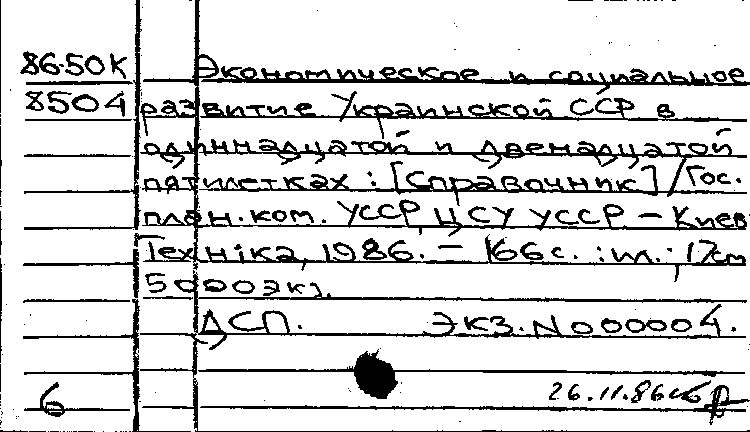 86-50к Экономическое и социальное
8504 развитие Украинской ССР в
одиннадцатой и двенадцатой
пятилетках : [Справочник] / Гос.
план. ком. УССР, ЦСУ УССР – Киев
Техніка, 1986. – 166 с. : ил. ; 17см
50003кз.
ДСП. Экз. N000004.
6 26.11.86